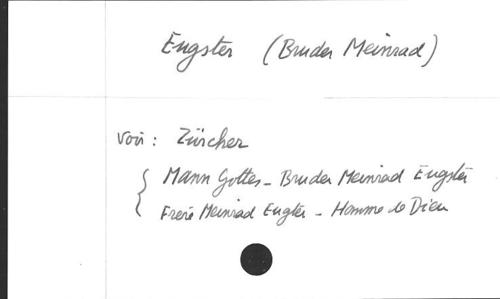 Eugster (Bruder Meinrad)
Voir : Zürcher
Mann Gottes - Bruder Meinrad Eugster
Frère Meinrad Eugster - Homme de Dieu